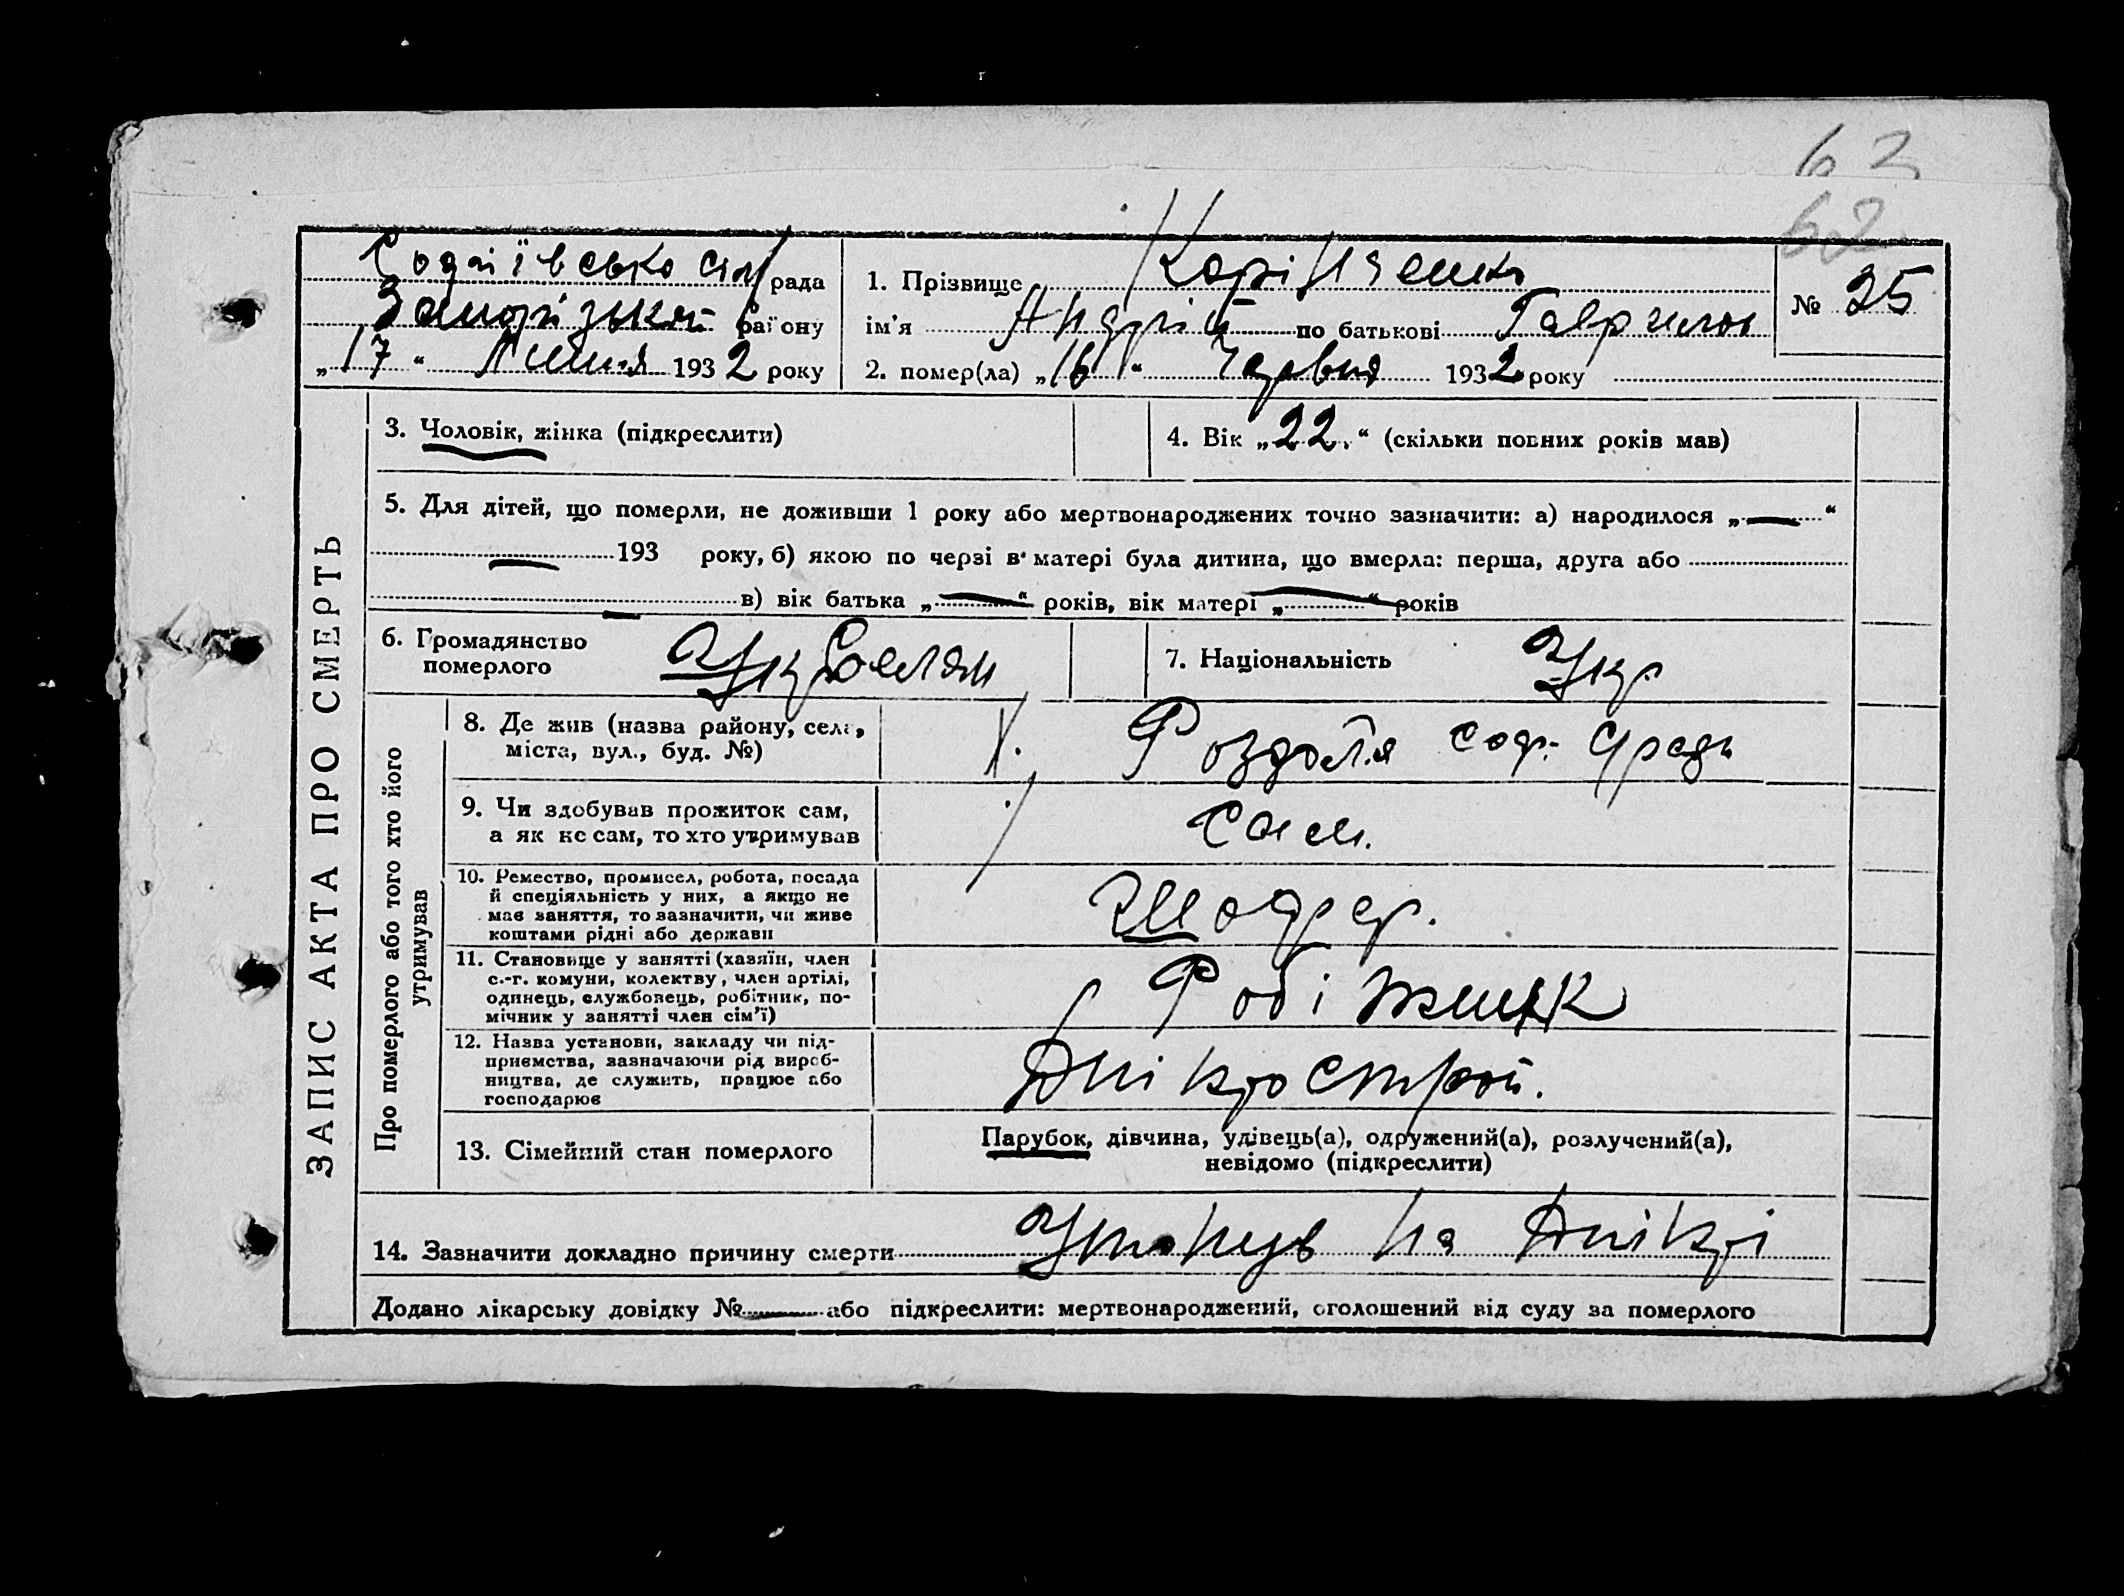 62
62
Софіївсько сіл рада
Запорізький району
„ 17 “ Липня 1932 року
1. Прізвище
ім’я Андрій по батькові Гаврилов
2. помер(ла) „ 16 “ Червня 1932 року
№ 25
ЗАПИС АКТА ПРО СМЕРТЬ
3. Чоловік, жінка (підкреслити)
4. Вік „ 22. “ (скільки повних років мав)
5. Для дітей, що померли, не доживши 1 року або мертвонароджених точно зазначити: а) народилося „ — “
— 193 року, б) якою по черзі в матері була дитина, що вмерла: перша, друга або
в) вік батька „ — “ років, вік матері „ — “ років
6. Громадянство
померлого
7. Національність Укр
Про померлого або того хто його
утримував
8. Де жив (назва району, села,
міста, вул., буд. №) Х. Роздолля соф. с/ради
9. Чи здобував прожиток сам,
а як не сам, то хто утримував
сам.
10. Ремество, промисел, робота, посада
й спеціяльність у них, а якщо не
має заняття, то зазначити, чи живе
коштами рідні або держави
Шофер.
11. Становище у занятті (хазяїн, член
с.-г. комуни, колектву, член артілі,
одинець, службовець, робітник, по-
мічник у занятті член сім’ї)
Робітник
12. Назва установи, закладу чи під-
приємства, зазначаючи рід вироб-
ництва, де служить, працює або
господарює
Дніпрострой.
13. Сімейний стан померлого
Парубок, дівчина, удівець(а), одружений(а), розлучений(а),
невідомо (підкреслити)
14. Зазначити докладно причину смерти Утонув на Дніпрі
Додано лікарську довідку № — або підкреслити: мертвонароджений, оголошений від суду за померлого